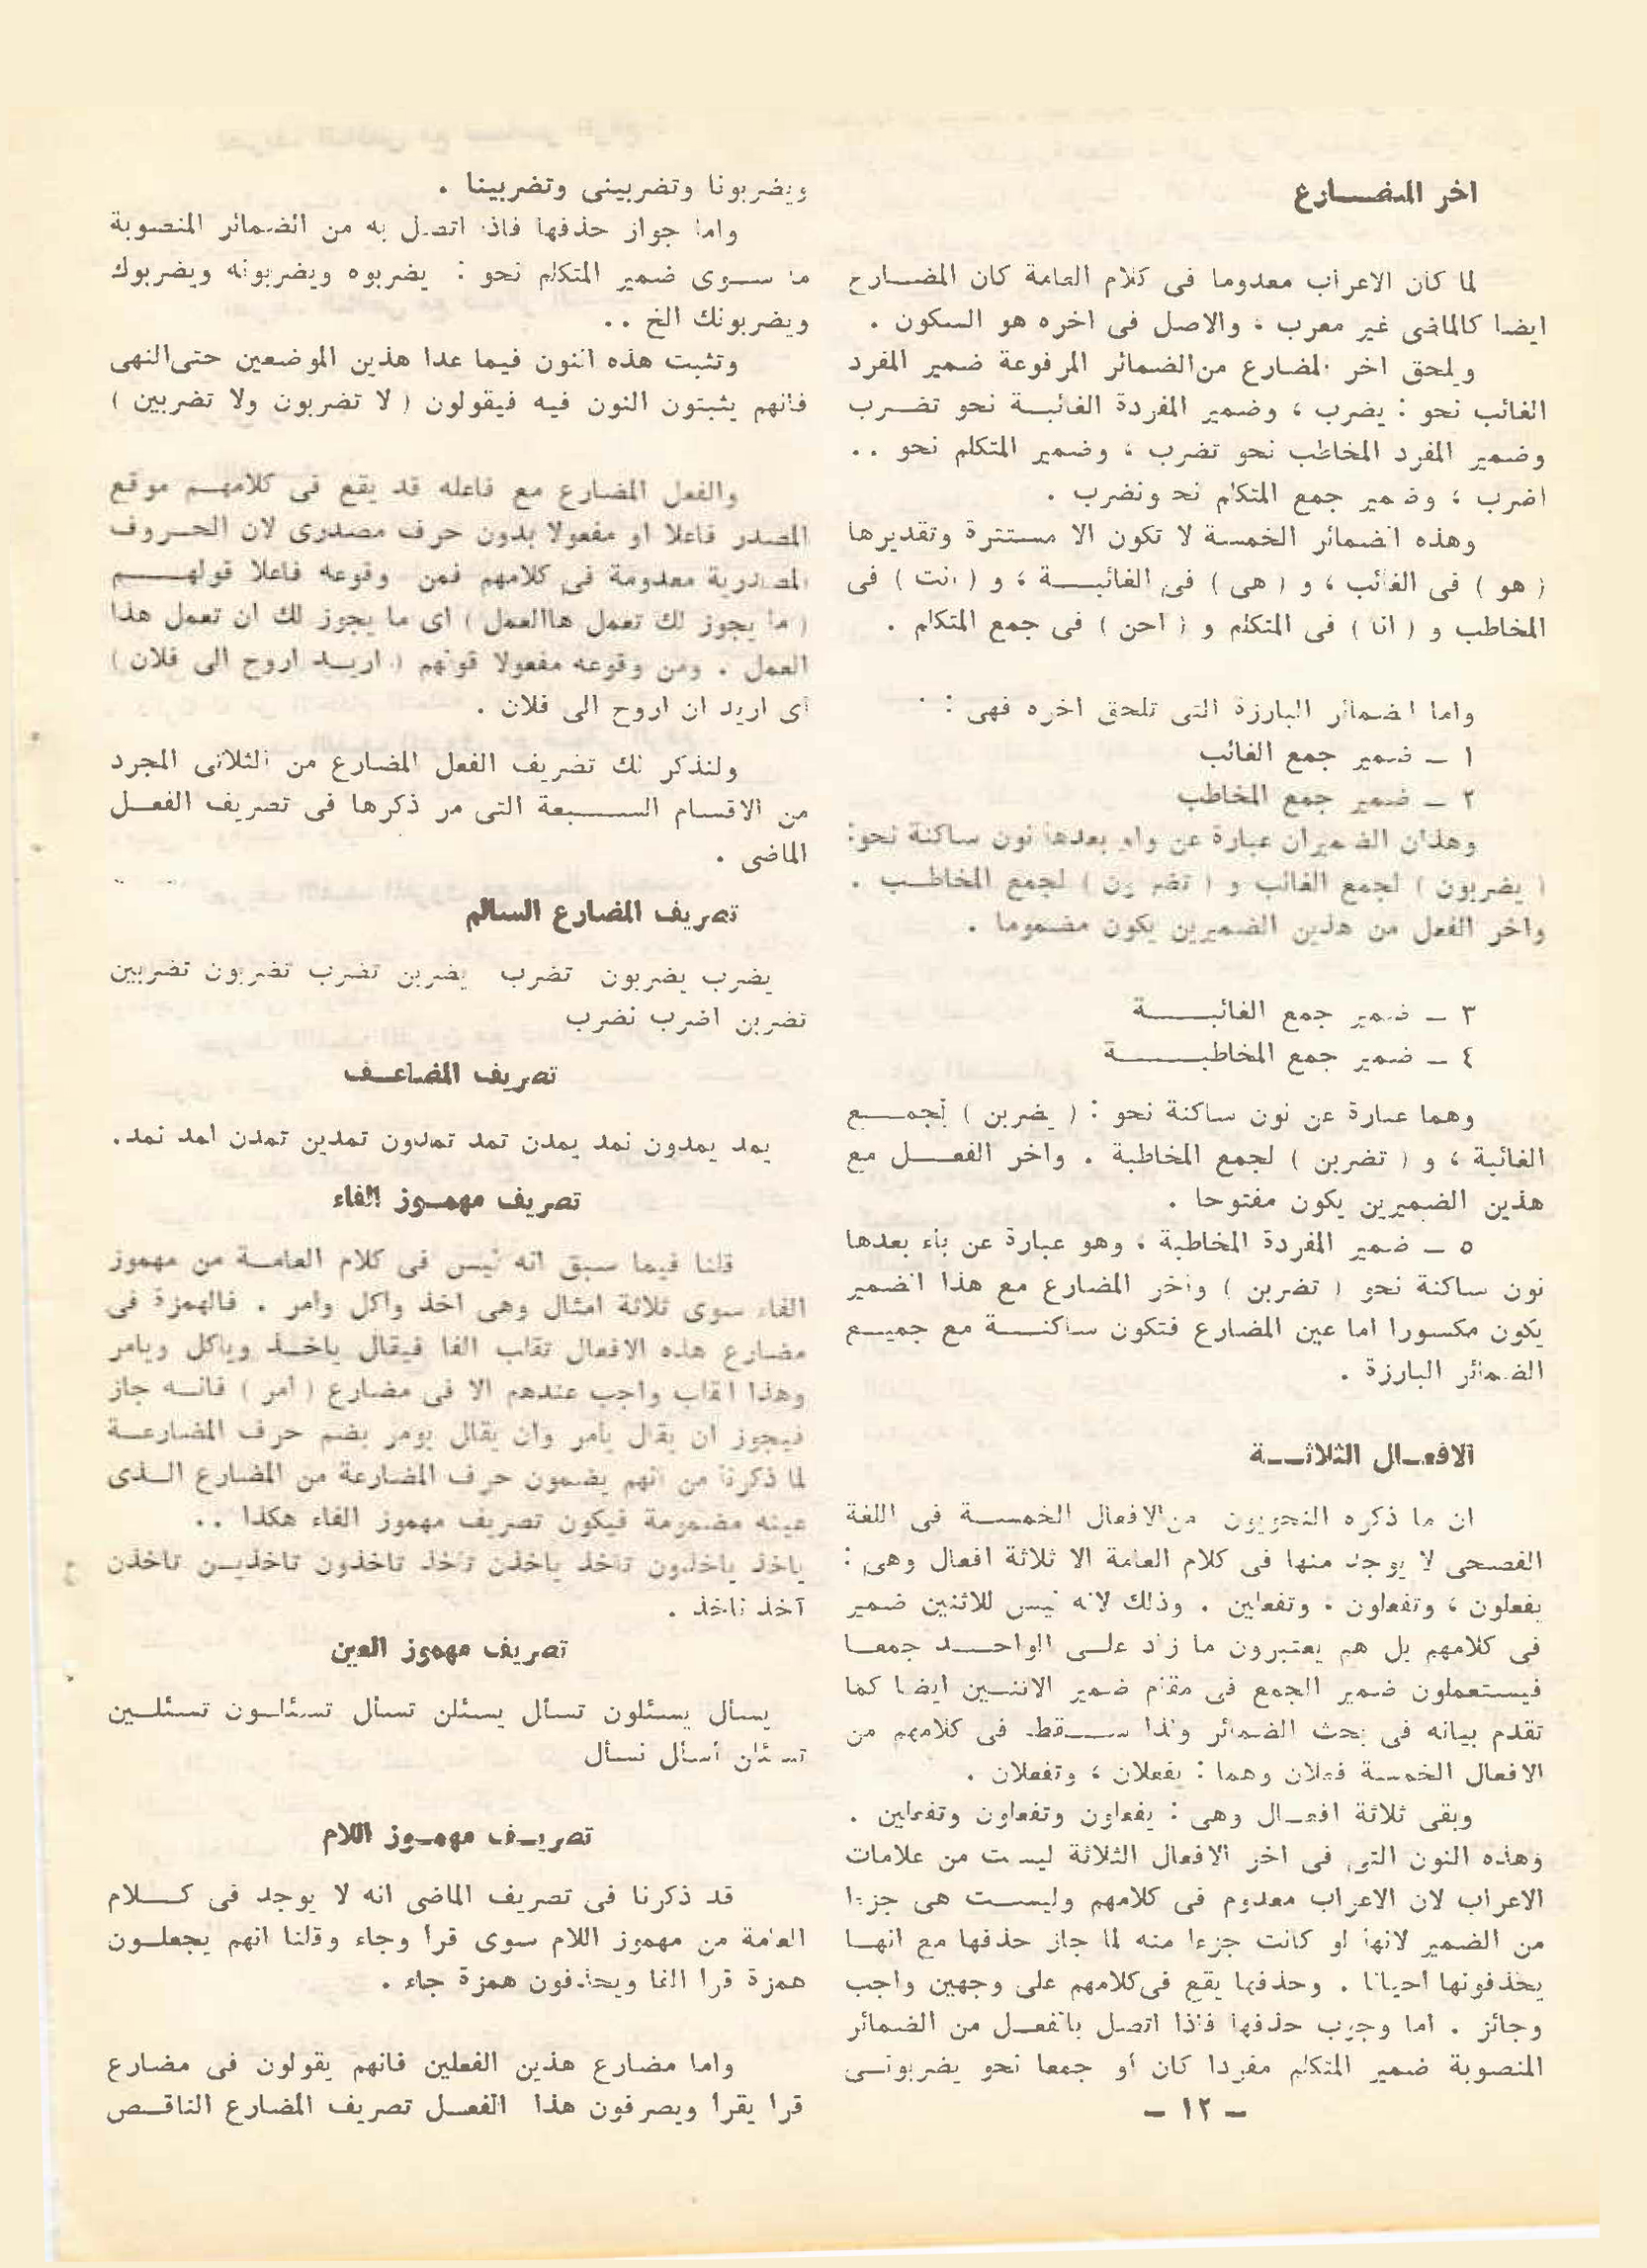 اخر المضارع
لما كان الاعراب معدوما فى كلام العامة كان المضارع
ايضا كالماضى غير معرب ، والاصل فى اخره هو السكون .
ويلحق اخر المضارع من الضمائر المرفوعة ضمير المفرد
الغائب نحو : يضرب ، وضمير المفردة الغائبة نحو تضرب
وضمير المفرد المخاطب نحو تضرب ، وضمير المتكلم نحو ..
اضرب ، وضمير جمع المتكلم نحو نضرب .
وهذه الضمائر الخمسة لا تكون الا مستترة وتقديرها
( هو ) فى الغائب ، و ( هى ) فى الغائبة ، و ( انت ) فى
المخاطب و ( انا ) فى المتكلم و ( احن ) فى جمع المتكلم .
واما الضمائر البارزة التى تلحق اخره فهى :
١ – ضمير جمع الغائب
٢ – ضمير جمع المخاطب
وهذان الضميران عبارة عن واو بعدها نون ساكنة نحو:
( يضربون ) لجمع الغائب و ( تضربون ) لجمع المخاطب .
واخر الفعل من هذين الضميرين يكون مضموما .
٣ – ضمير جمع الغائبة
٤ – ضمير جمع المخاطبة
وهما عبارة عن نون ساكنة نحو : ( يضربن ) لجمع
الغائبة ، و ( تضربن ) لجمع المخاطبة . واخر الفعل مع
هذين الضميرين يكون مفتوحا .
٥ – ضمير المفردة المخاطبة ، وهو عبارة عن ياء بعدها
نون ساكنة نحو ( تضربن ) واخر المضارع مع هذا الضمير
يكون مكسورا اما عين المضارع فتكون ساكنة مع جميع
الضمائر البارزة .
الافعال الثلاثة
ان ما ذكره النحويون من الافعال الخمسة فى اللغة
الفصحى لا يوجد منها فى كلام العامة الا ثلاثة افعال وهى :
يفعلون ، وتفعلون ، وتفعلين . وذلك لانه ليس للاثنين ضمير
فى كلامهم بل هم يعتبرون ما زاد على الواحد جمعا
فيستعملون ضمير الجمع فى مقام ضمير الاثنين ايضا كما
تقدم بيانه فى بحث الضمائر ولذا سقط فى كلامهم من
الافعال الخمسة فعلان وهما : يفعلان ، وتفعلان .
وبقى ثلاثة افعال وهى : يفعلون وتفعلون وتفعلين .
وهذه النون التى فى اخر الافعال الثلاثة ليست من علامات
الاعراب لان الاعراب معدوم فى كلامهم وليست هى جزءا
من الضمير لانها لو كانت جزءا منه لما جاز حذفها مع انها
يحذفونها احيانا . وحذفها يقع فى كلامهم على وجهين واجب
وجائز . اما وجوب حذفها فاذا اتصل بالفعل من الضمائر
المنصوبة ضمير المتكلم مفردا كان أو جمعا نحو يضربونى
– ١٢ –
ويضربونا وتضربينى وتضربينا .
واما جواز حذفها فاذا اتصل به من الضمائر المنصوبة
ما سوى ضمير المتكلم نحو : يضربوه ويضربونه ويضربوك
ويضربونك الخ ..
وتثبت هذه النون فيما عدا هذين الموضعين حتى النهى
فانهم يثبتون النون فيه فيقولون ( لا تضربون ولا تضربين )
والفعل المضارع مع فاعله قد يقع فى كلامهم موقع
المصدر فاعلا او مفعولا بدون حرف مصدرى لان الحروف
المصدرية معدومة فى كلامهم فمن وقوعه فاعلا قولهم
( ما يجوز لك تعمل هاالعمل ) اى ما يجوز لك ان تعمل هذا
العمل . ومن وقوعه مفعولا قولهم ( اريد اروح الى فلان )
أى اريد ان اروح الى فلان .
ولنذكر لك تضريف الفعل المضارع من الثلاثى المجرد
من الاقسام السبعة التى مر ذكرها فى تصريف الفعل
الماضى .
تصريف المضارع السالم
يضرب يضربون تضرب يضربن تضرب تضربون تضربين
تضربن اضرب نضرب
تصريف المضاعف
يمد يمدون تمد يمدن تمد تمدون تمدين تمدن امد نمد.
تصريف مهموز الفاء
قلنا فيما سبق انه ليس فى كلام العامة من مهموز
الفاء سوى ثلاثة امثال وهى اخذ واكل وامر . فالهمزة فى
مضارع هذه الافعال تقلب الفا فيقال ياخذ وياكل ويامر
وهذا القلب واجب عندهم الا فى مضارع ( امر ) فانه جاز
فيجوز ان يقال يأمر وان يقال يومر بضم حرف المضارعة
لما ذكرنا من انهم يضمون حرف المضارعة من المضارع الذى
عينه مضمومة فيكون تصريف مهموز الفاء هكذا ..
ياخذ ياخذون تاخذ ياخذن تاخذ تاخذون تاخذين تاخذن
آخذ ناخذ .
تصريف مهموز العين
يسأل يسئلون تسأل يسئلن تسأل تسئلون تسئلين
تسئلن أسأل نسأل
تصريف مهموز اللام
قد ذكرنا فى تصريف الماضى انه لا يوجد فى كلام
العامة من مهموز اللام سوى قرأ وجاء وقلنا انهم يجعلون
همزة قرا الفا ويحذفون همزة جاء .
واما مضارع هذين الفعلين فانهم يقولون فى مضارع
قرا يقرا ويصرفون هذا الفعل تصريف المضارع الناقص